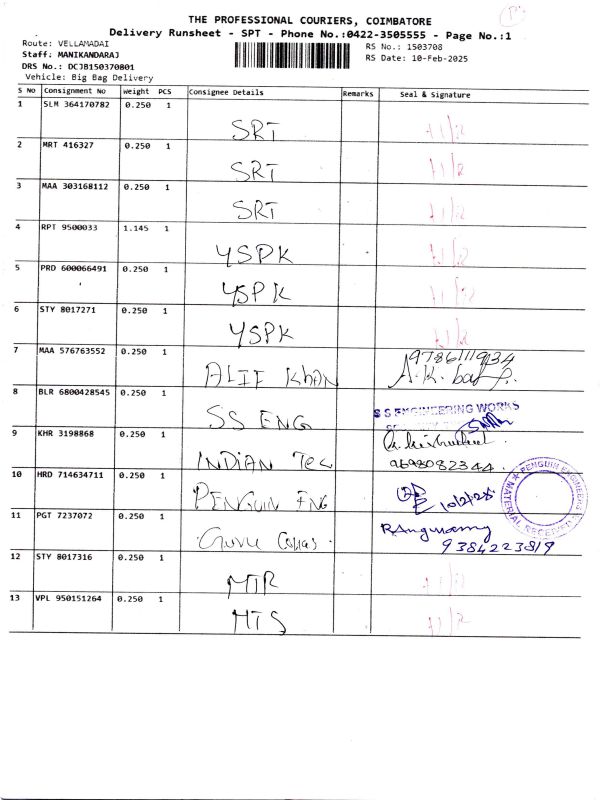 THE PROFESSIONAL COURIERS, COIMBATORE
Delivery Runsheet - SPT - Phone No.:0422-3505555 - Page No.:1
Route: VELLAMADAI
RS No.: 1503708
Staff: MANIKANDARAJ
RS Date: 10-Feb-2025
DRS No.: DCJB150370801
Vehicle: Big Bag Delivery
S No Consignment No Weight PCS Consignee Details Remarks Seal & Signature
1 SLM 364170782 0.250 1
SRT
2 MRT 416327 0.250 1
SRT
3 MAA 303168112 0.250 1
SRT
4 RPT 9500033 1.145 1
YSPK
5 PRD 600066491 0.250 1
YSPK
6 STY 8017271 0.250 1
YSPK
7 MAA 576763552 0.250 1
ALIF Khan
8 BLR 6800428545 0.250 1
SS ENG S S ENGINEERING WORKS
9 KHR 3198868 0.250 1
INDIAN Tec 9698082344
10 HRD 714634711 0.250 1
PENGUIN ENG 10/2/25 PENGUIN ENGINEERS MATERIAL RECEIVED
11 PGT 7237072 0.250 1
9384223819
12 STY 8017316 0.250 1
MTR
13 VPL 950151264 0.250 1
MTS